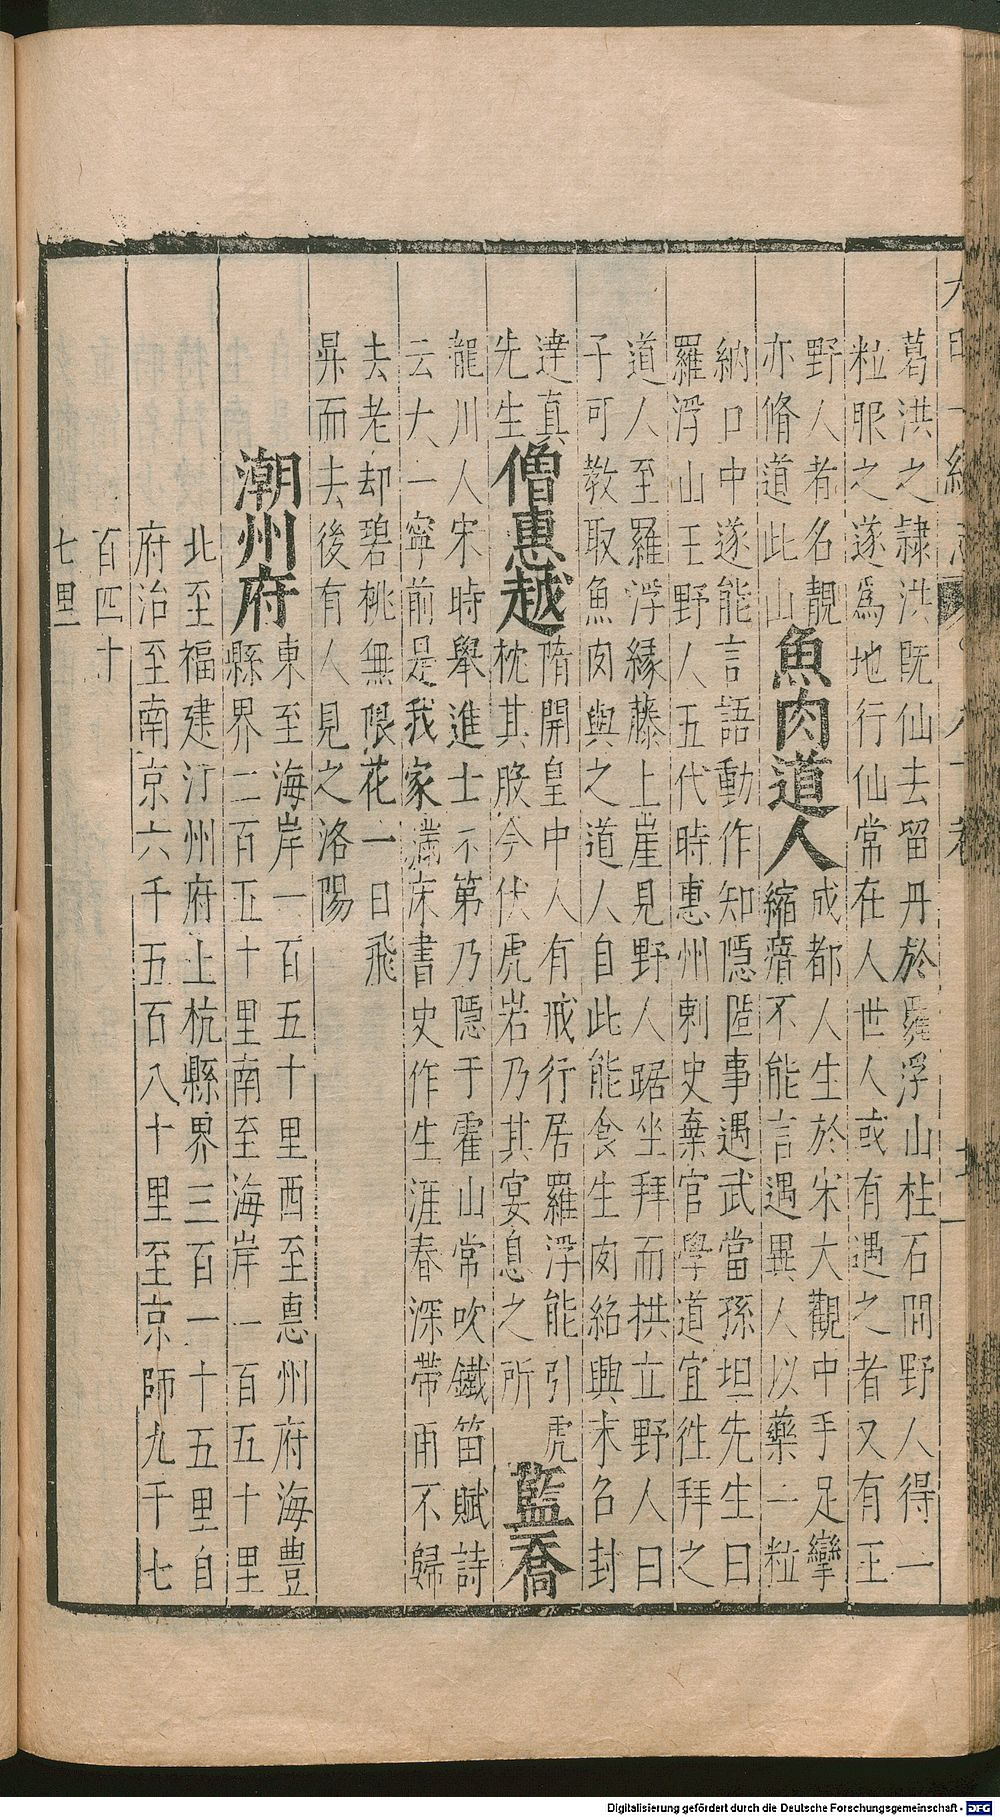 大明一統志
葛洪之隷洪既仙去留丹於羅浮山柱石間野人得一
粒服之遂爲地行仙常在人世人或有遇之者又有王
野人者名靚
亦脩道此山
魚肉道人
成都人生於宋大觀中手足攣
縮瘖不能言遇異人以藥一粒
納口中遂能言語動作知隱匿事遇武當孫坦先生曰
羅浮山王野人五代時惠州刺史棄官學道宜徃拜之
道人至羅浮緣藤上崖見野人踞坐拜而拱立野人曰
子可教取魚肉與之道人自此能食生肉紹興末名封
達真
先生
僧惠越
隋開皇中人有戒行居羅浮能引虎
枕其股今伏虎岩乃其宴息之所
藍喬
龍川人宋時舉進士不第乃隱于霍山常吹鐵笛賦詩
云大一寧前是我家滿床書史作生涯春深帶雨不歸
去老却碧桃無限花一日飛
昇而去後有人見之洛陽
潮州府
東至海岸一百五十里西至惠州府海豐
縣界二百五十里南至海岸一百五十里
北至福建汀州府上杭縣界三百一十五里自
府治至南京六千五百八十里至京師九千七
百四十
七里
Digitalisierung gefördert durch die Deutsche Forschungsgemeinschaft - DFG